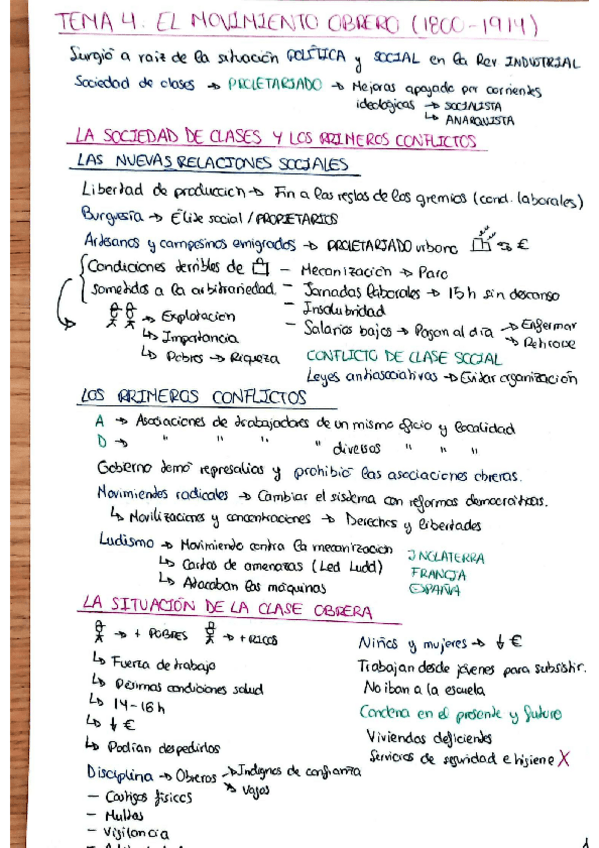 TEMA 4. EL MOVIMIENTO OBRERO (1800-1914)
Surgió a raiz de la situación POLÍTICA y SOCIAL en la Rev INDUSTRIAL
Sociedad de clases → PROLETARIADO → Mejoras apoyado por corrientes
ideológicas → SOCIALISTA
↳ ANARQUISTA
LA SOCIEDAD DE CLASES Y LOS PRIMEROS CONFLICTOS
LAS NUEVAS RELACIONES SOCIALES
Libertad de produccion → Fin a las reglas de los gremios (cond. laborales)
Burguesía → Élite social / PROPIETARIOS
Artesanos y campesinos emigrados → PROLETARIADO urbano → €
Condiciones terribles de
sometidos a la arbitrariedad
→ Explotacion
↳ Impotancia
↳ Pobres → Riqueza
- Mecanización → Paro
- Jornadas laborales → 15h sin descanso
- Insalubridad
- Salarios bajos → Pagan al día → Enfermar
CONFLICTO DE CLASE SOCIAL
Leyes antiasociativas → Evitar organización
LOS PRIMEROS CONFLICTOS
A → Asociaciones de trabajadores de un mismo oficio y localidad
D → " " " " diversos " " "
Gobierno temó represalias y prohibió las asociaciones obreras.
Movimientos radicales → Cambiar el sistema con reformas democráticas.
↳ Movilizaciones y concentraciones → Derechos y libertades
Ludismo → Movimiento contra la mecanización
↳ Cartas de amenazas (Led Ludd)
↳ Atacaban las máquinas
INGLATERRA
FRANCIA
ESPAÑA
LA SITUACIÓN DE LA CLASE OBRERA
→ + POBRES → + RICOS
↳ Fuerza de trabajo
↳ Pésimas condiciones salud
↳ 14-16h
↳ ↓ €
↳ Podían despedirlos
Disciplina → Obreros → Indignos de confianza
→ Vagos
- Castigos físicos
- Multas
- Vigilancia
Niños y mujeres → ↓ €
Trabajan desde jóvenes para subsistir.
No iban a la escuela
Condena en el presente y futuro
Viviendas deficientes
Servicios de seguridad e higiene X